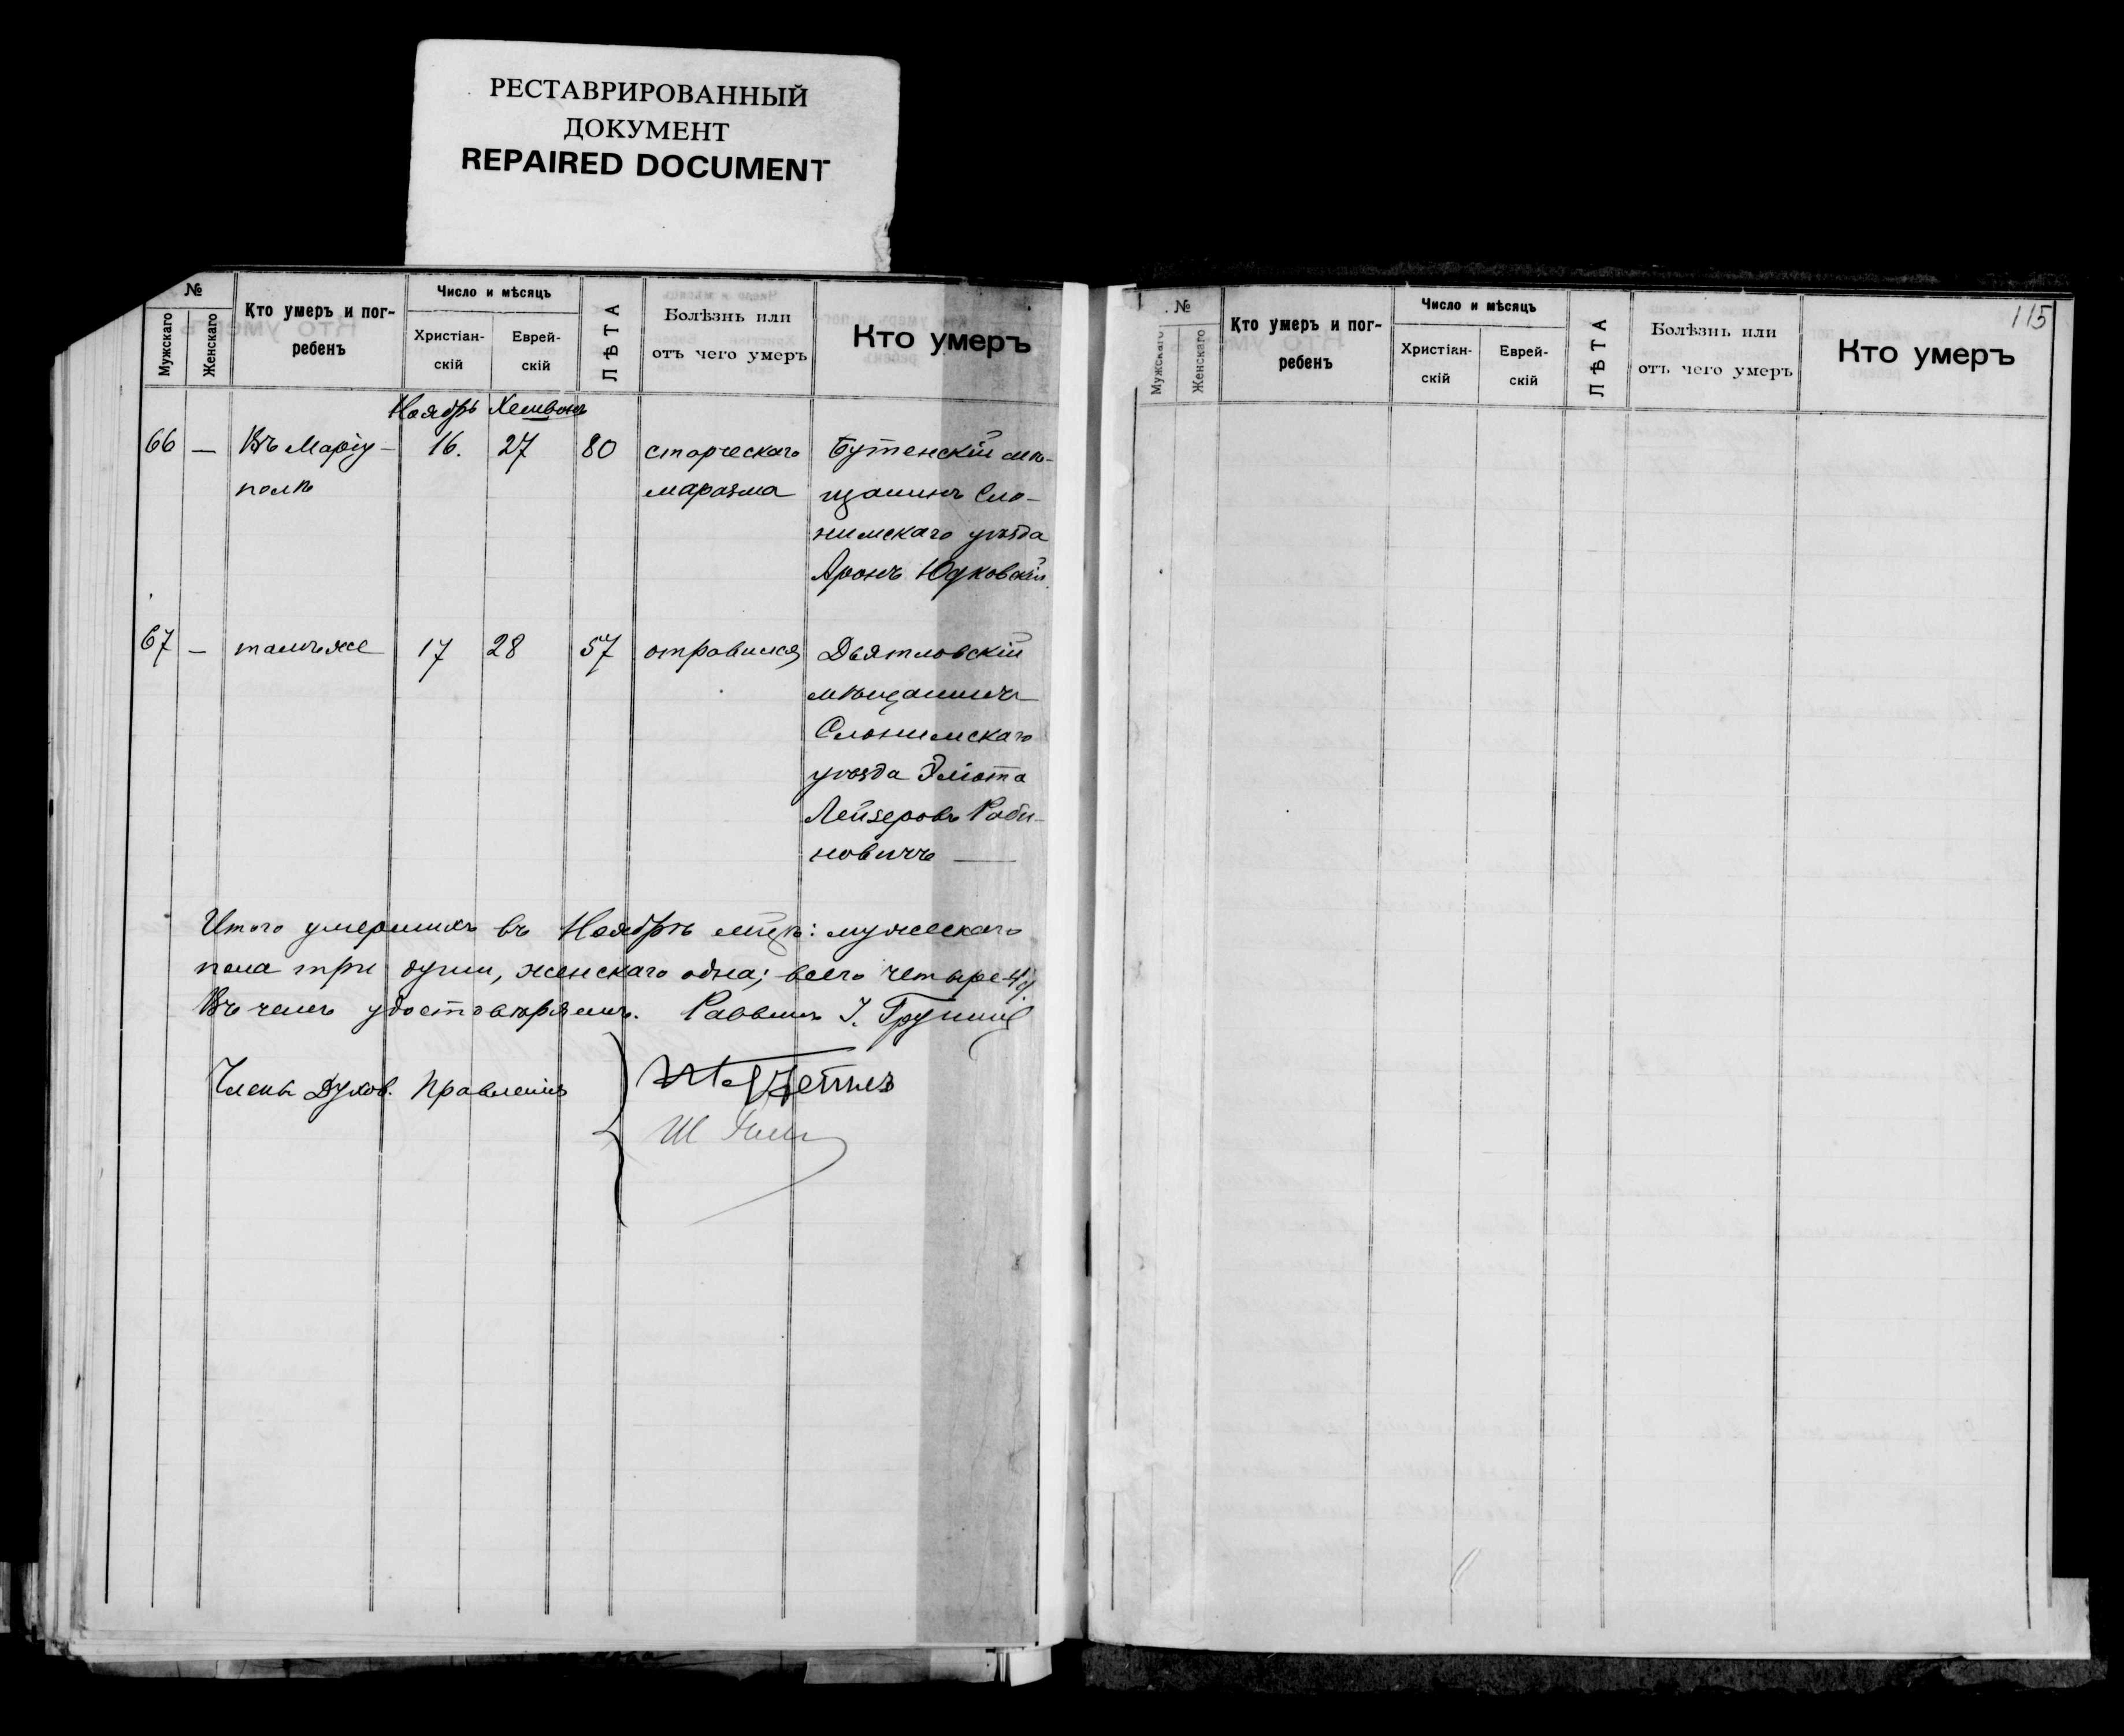 РЕСТАВРИРОВАННЫЙ
ДОКУМЕНТ
REPAIRED DOCUMENT
№
Мужскаго
Женскаго
Кто умеръ и пог-
ребенъ
Число и мѣсяцъ
Христіан-
скій
Еврей-
скій
ЛѢТА
Болѣзнь или
отъ чего умеръ
Кто умеръ
Ноябрь Хешвонъ
66 — Въ Маріу- 16. 27 80 старческаго Бутенскій мѣ-
полѣ маразма щанинъ Сло-
нимскаго уѣзда
Аронъ Юдковскій
67 — тамъ же 17 28 57 отравился Дѣятловскій
мѣщанинъ
Слонимскаго
уѣзда
Лейзеровъ Раби-
новичъ —
Итого умершихъ въ Ноябрѣ м-цѣ: мужескаго
пола три души, женскаго одна; всего четыре
Въ чемъ удостовѣряемъ. Раввинъ
Члены Духов. Правленія
115
№
Мужскаго
Женскаго
Кто умеръ и пог-
ребенъ
Число и мѣсяцъ
Христіан-
скій
Еврей-
скій
ЛѢТА
Болѣзнь или
отъ чего умеръ
Кто умеръ